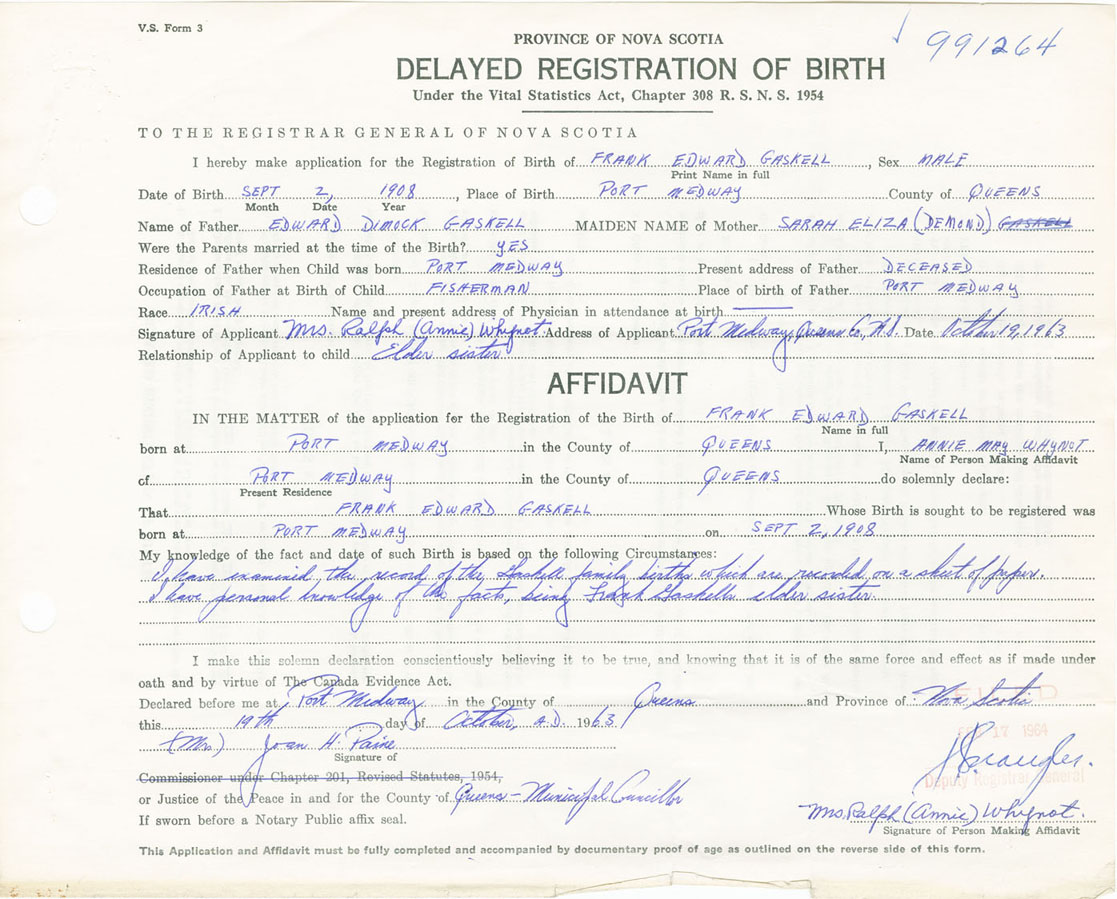 V.S. Form 3
991264
PROVINCE OF NOVA SCOTIA
DELAYED REGISTRATION OF BIRTH
Under the Vital Statistics Act, Chapter 308 R. S. N. S. 1954
TO THE REGISTRAR GENERAL OF NOVA SCOTIA
I hereby make application for the Registration of Birth of FRANK EDWARD GASKELL, Sex MALE
Print Name in full
Date of Birth SEPT 2, 1908, Place of Birth PORT MEDWAY County of QUEENS
Month Date Year
Name of Father EDWARD DIMOCK GASKELL MAIDEN NAME of Mother SARAH ELIZA (DEMOND) GASKELL
Were the Parents married at the time of the Birth? YES
Residence of Father when Child was born PORT MEDWAY Present address of Father DECEASED
Occupation of Father at Birth of Child FISHERMAN Place of birth of Father PORT MEDWAY
Race IRISH Name and present address of Physician in attendance at birth
Signature of Applicant Mrs. Ralph (Annie) Whynot Address of Applicant Port Medway, Queens Co., N.S. Date October 19, 1963
Relationship of Applicant to child Elder sister
AFFIDAVIT
IN THE MATTER of the application for the Registration of the Birth of FRANK EDWARD GASKELL
Name in full
born at PORT MEDWAY in the County of QUEENS I, ANNIE MAY WHYNOT
Name of Person Making Affidavit
of PORT MEDWAY in the County of QUEENS do solemnly declare:
Present Residence
That FRANK EDWARD GASKELL Whose Birth is sought to be registered was
born at PORT MEDWAY on SEPT 2, 1908
My knowledge of the fact and date of such Birth is based on the following Circumstances:
I have examined the record of the Gaskell family births which are recorded on a sheet of paper.
I have personal knowledge of the facts, being Frank Gaskell's elder sister.
I make this solemn declaration conscientiously believing it to be true, and knowing that it is of the same force and effect as if made under
oath and by virtue of The Canada Evidence Act.
Declared before me at Port Medway in the County of Queens and Province of Nova Scotia
this 19th day of October, A.D. 1963
17 1964
(Mrs.) Joan H. Paine
Signature of
Commissioner under Chapter 201, Revised Statutes, 1954,
Deputy Registrar General
or Justice of the Peace in and for the County of Queens - Municipal Councillor
Mrs. Ralph (Annie) Whynot.
If sworn before a Notary Public affix seal.
Signature of Person Making Affidavit
This Application and Affidavit must be fully completed and accompanied by documentary proof of age as outlined on the reverse side of this form.